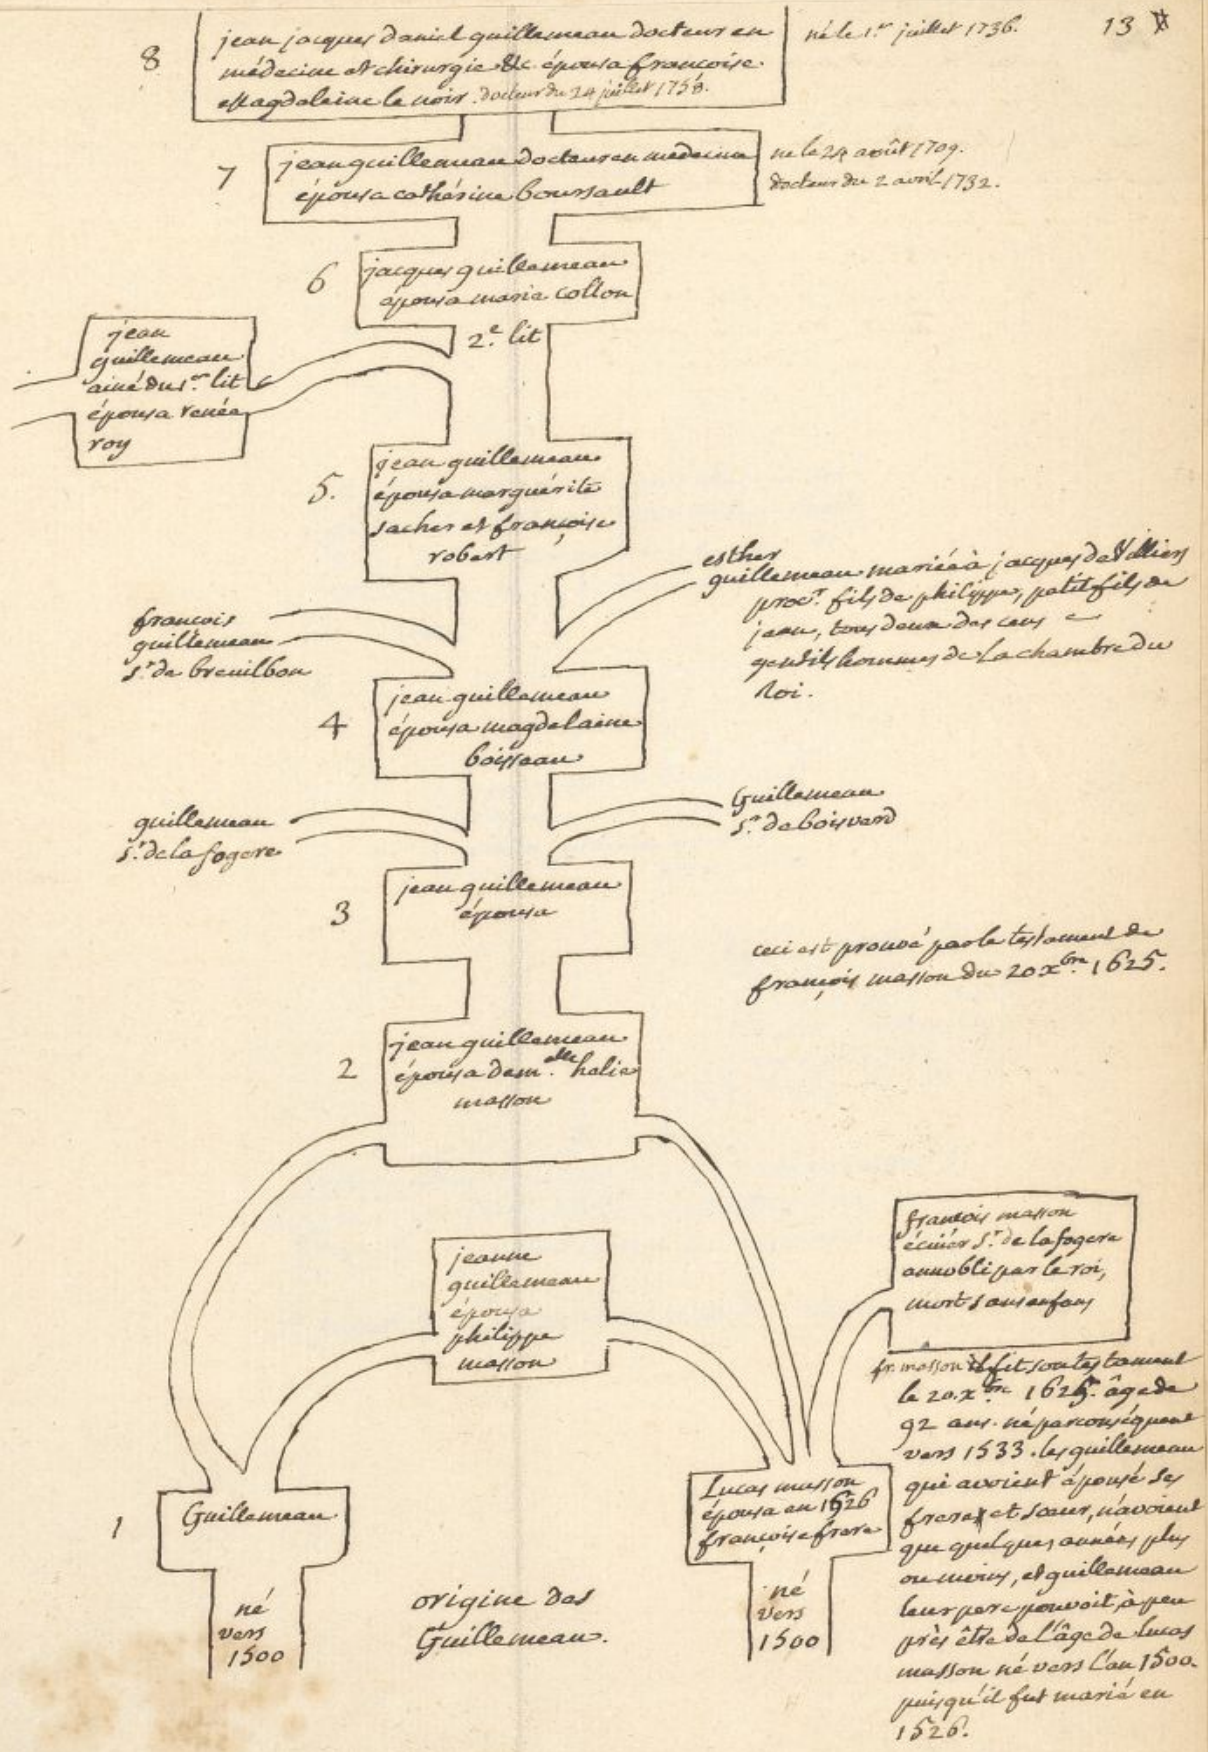 13
8
jean jacques daniel guillemeau docteur en
médecine et chirurgie &c. épousa françoise
Magdelaine le noir. docteur du 24 juillet 1758.
né le 1.er juillet 1736.
7
jean guillemeau docteur en medecine
épousa cathérine boursault
ne le 24 août 1709.
docteur du 2 avril 1732.
6
jacques guillemeau
épousa marie collon
2.e lit
jean
guillemeau
ainé du 1.er lit
épousa renée
roy
5.
jean guillemeau
épousa marguérite
sacher et françoise
robert
esther
guillemeau mariée à jacques de Villiers
proc.r fils de philippe, petit fils de
jean, tous deux des cent
gentilshommes de la chambre du
Roi.
françois
guillemeau
s.r de breuilbon
4
jean guillemeau
épousa magdelaine
boisseau
guillemeau
s.r de la fogere
Guillemeau
s.r de boisverd
3
jean guillemeau
épousa
ceci est prouvé par le testament de
françois masson du 20 xbre. 1625.
2
jean guillemeau
épousa dem.elle helie
masson
jeanne
guillemeau
épousa
philippe
masson
françois masson
écuiér s.r de la fogere
annobli par le roi,
mort sans enfans
fr. masson fit son testament
le 20. xbre 1625. âge de
92 ans. né par conséquent
vers 1533. les guillemeau
qui avoient épousé ses
frere et sœur, n'avoient
que quelques années plus
ou moins, et guillemeau
leur pere pouvoit, à peu
près être de l'âge de lucas
masson né vers l'an 1500.
puisqu'il fut marié en
1526.
1
Guillemeau
né
vers
1500
Lucas masson
épousa en 1526
françoise frere
né
vers
1500
origine des
Guillemeau.